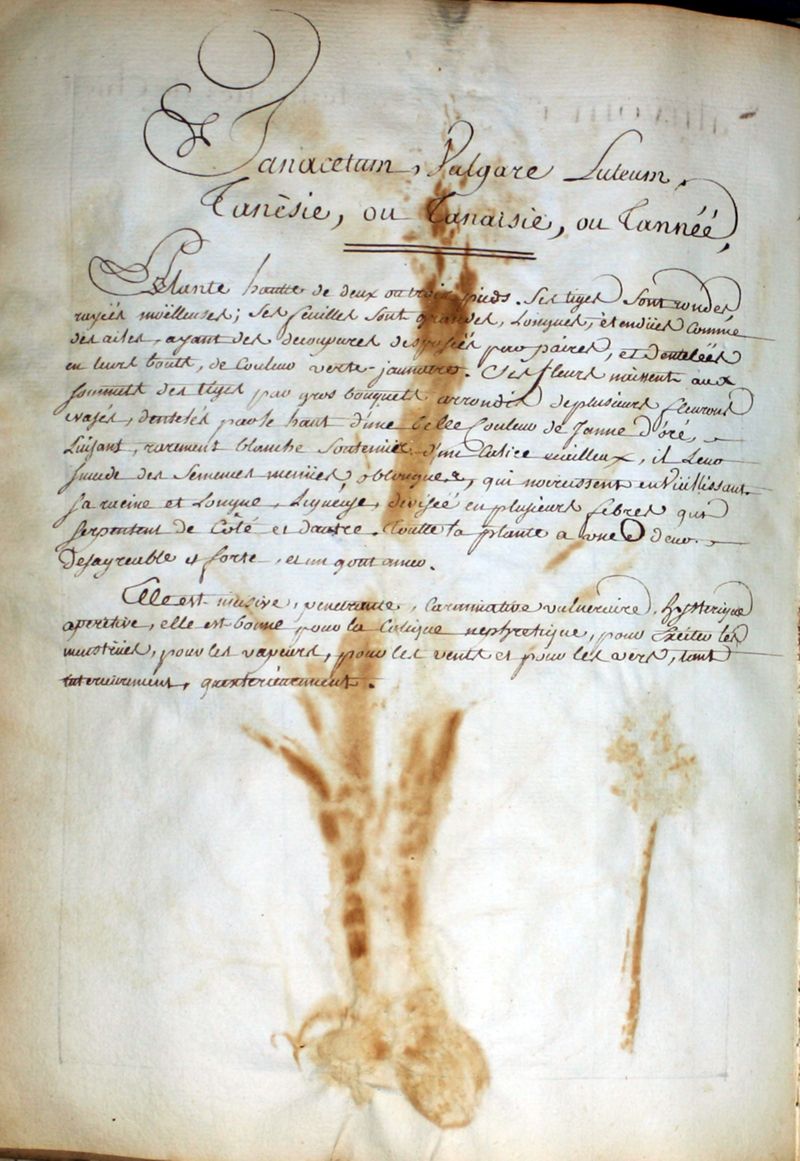 Tanacetum, Vulgare Luteum,
Tanèsie, ou Tanaisie, ou Tannéé,
Plante hautte de deux ou trois pieds. Ses tiges Sont rondes
rayiés moëlleuses; Ses feuilles Sont grandes, Longues, étendües Comme
des ailes, ayant des decoupures disposéés par paires, et dentelées
en leurs bouts, de Couleur verte-jaunatre. Ses fleurs naissent aux
sommets des tiges par gros bouquets arrondis de plusieurs fleurons
evasés, dentelés par le haut d'une belle Couleur de Jaune d'oré,
Luisant, rarement blanche Soutenües d'un Calice ecailleux, il Leur
succede des Semences menües oblongues, qui noircissent en Vieillissant.
Sa racine et Longue, Ligneuse, diviséé en plusieurs fibres qui
serpentent de Coté et dautre. Toutte la plante a une odeur
Desagreable et forte, et un gout amer.
Elle est incisive, penetrante, Carminative vulneraire, hysterique
aperitive, elle est bonne pour la Colique nephretique, pour Exciter les
menstrües, pour les vapeurs, pour les vents et pour les vers, tant
interieurement, qu'exterieurement.